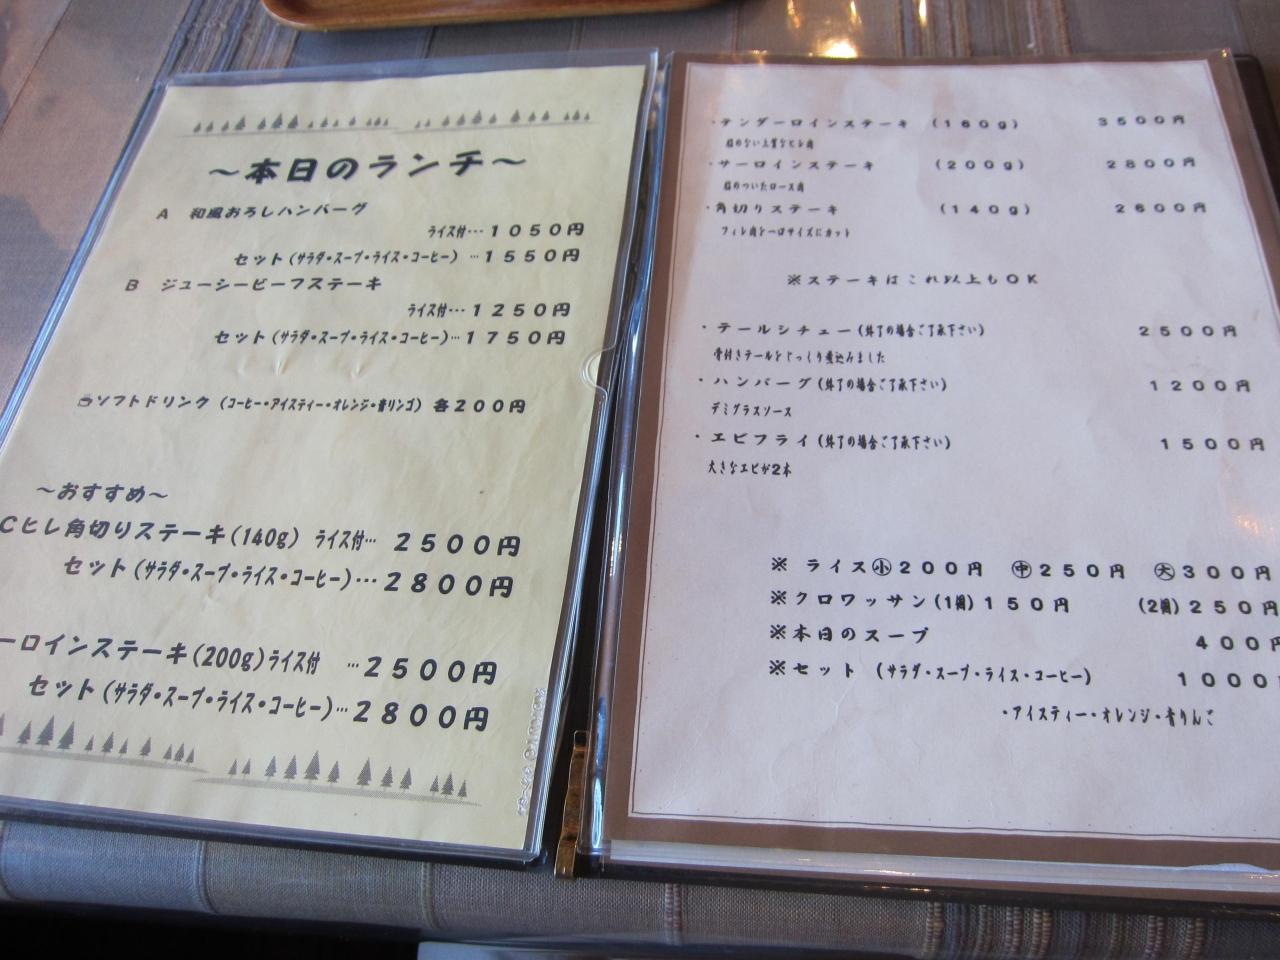 ～本日のランチ～
A 和風おろしハンバーグ
ライス付…１０５０円
セット(サラダ・スープ・ライス・コーヒー) …１５５０円
B ジューシービーフステーキ
ライス付…１２５０円
セット(サラダ・スープ・ライス・コーヒー)…１７５０円
ソフトドリンク (コーヒー・アイスティー・オレンジ・青リンゴ) 各２００円
～おすすめ～
Cヒレ角切りステーキ(140g) ライス付… ２５００円
セット(サラダ・スープ・ライス・コーヒー)…２８００円
ーロインステーキ(200g)ライス付 …２５００円
セット(サラダ・スープ・ライス・コーヒー)…２８００円
・テンダーロインステーキ (１６０ｇ) ３５００円
脂のない上質なヒレ肉
・サーロインステーキ (２００ｇ) ２８００円
脂のついたロース肉
・角切りステーキ (１４０ｇ) ２６００円
フィレ肉を一口サイズにカット
※ステーキはこれ以上もＯＫ
・テールシチュー(終了の場合ご了承下さい) ２５００円
骨付きテールをじっくり煮込みました
・ハンバーグ(終了の場合ご了承下さい) １２００円
デミグラスソース
・エビフライ(終了の場合ご了承下さい) １５００円
大きなエビが2本
※ ライス㊙小２００円 ㊥２５０円 大３００円
※クロワッサン(1個)１５０円 (2個)２５０円
※本日のスープ ４００円
※セット (サラダ・スープ・ライス・コーヒー) １０００円
・アイスティー・オレンジ・青りんご